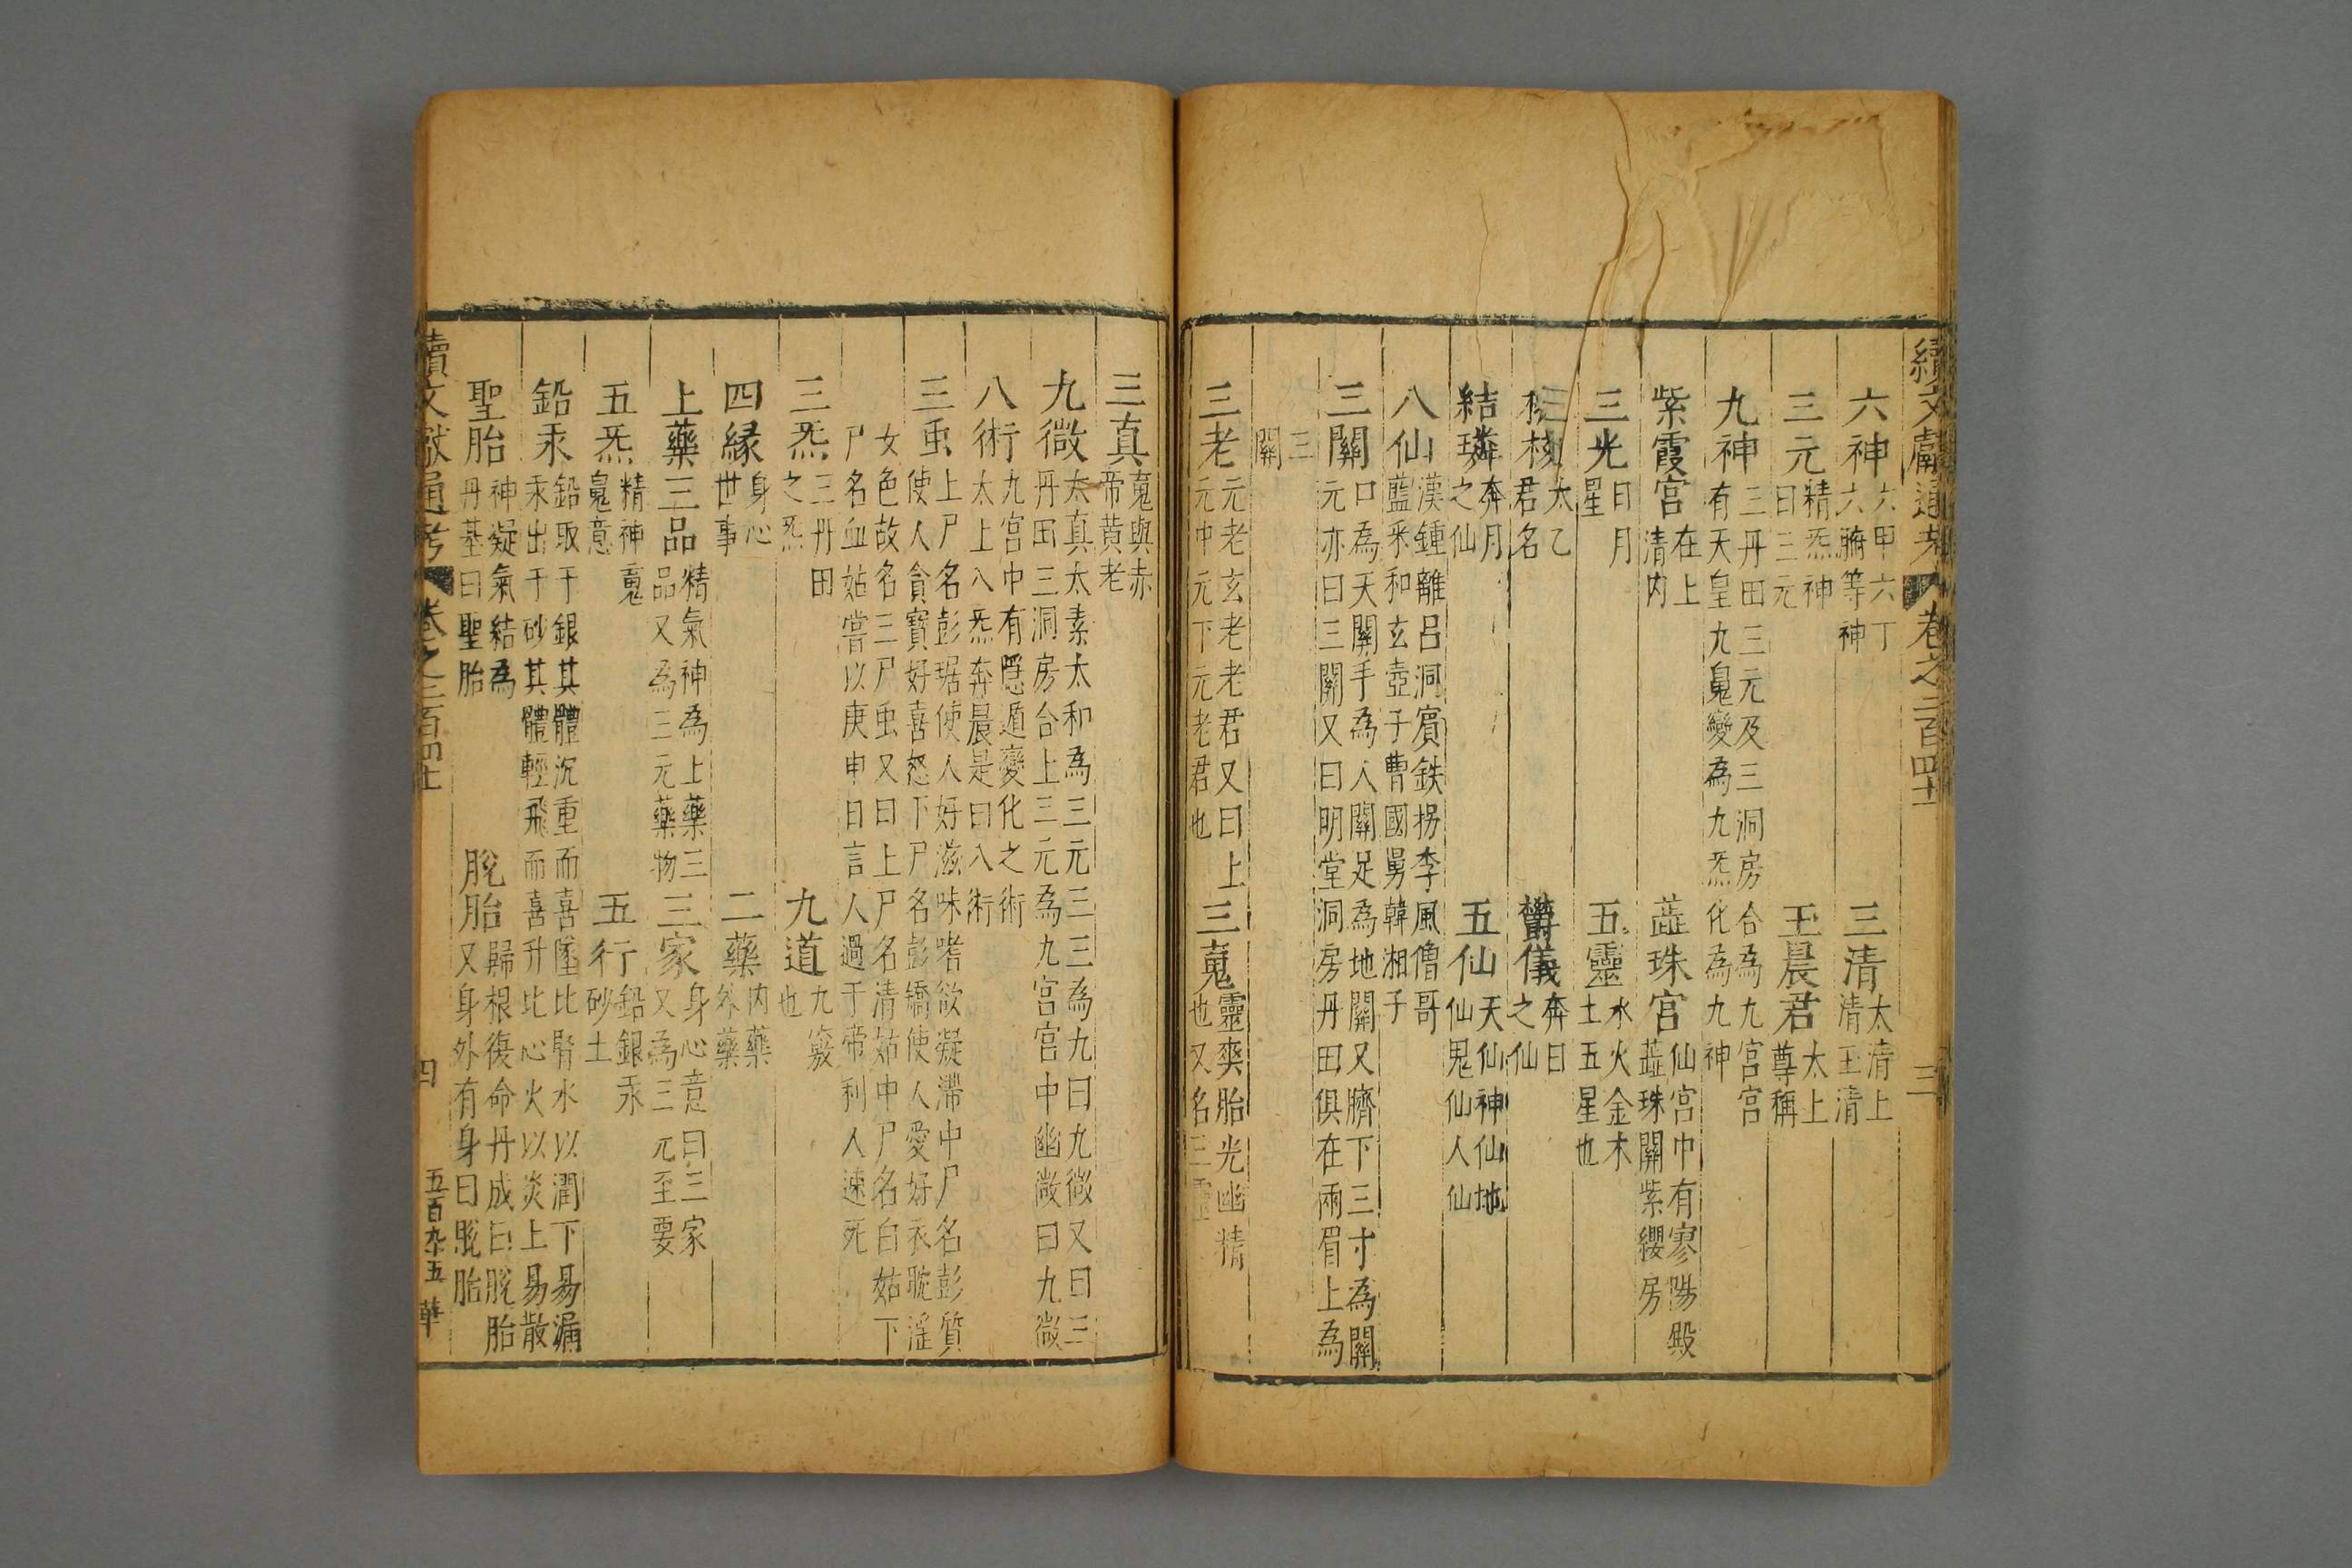 續文獻通考 卷之二百四十 三
六神 六甲六丁六腑等神 三清 太清上清玉清
三元 精炁神曰三元 玉晨君 太上尊稱
九神 三丹田三元及三洞房合為九宮宮有天皇九䰟變為九炁化為九神
紫霞宮 在上清內 蕋珠宮 仙宮中有寥陽殿蕋珠闕紫纓房
三光 日月星 五靈 水火金木土五星也
太乙君名 鬱儀 奔日之仙
結璘 奔月之仙 五仙 天仙神仙地仙鬼仙人仙
八仙 漢鍾離呂洞賓鉄拐李風僧哥藍采和玄壺子曹國舅韓湘子
三關 口為天關手為人關足為地關又臍下三寸為關元亦曰三關又曰明堂洞房丹田俱在兩眉上為
三關
三老 元老玄老老君又曰上元中元下元老君也 三䰟 靈爽胎光幽精也又名三靈
三真 䰟與赤帝黃老
九微 太真太素太和為三元三三為九曰九微又曰三丹田三洞房合上三元為九宮宮中幽微曰九微
八術 行九宮中有隱遁變化之術太上八炁奔晨是曰八術
三虫 上尸名彭琚使人好滋味嗜欲凝滯中尸名彭質使人貪寶好喜怒下尸名彭矯使人愛好衣聡淫
女色故名三尸虫又曰上尸名清姑中尸名白姑下尸名血姑嘗以庚申日言人過于帝利人速死
三炁 三丹田之炁 九道 九竅也
四縁 身心世事 二藥 內藥外藥
上藥三品 精氣神為上藥三品又為三元藥物 三家 身心意曰三家又為三元至要
五炁 精神䰟䰟意 五行 鉛銀汞砂土
鉛汞 鉛取于銀其體沉重而喜墜比腎水以潤下易漏汞出于砂其體輕飛而喜升比心火以炎上易散
聖胎 神凝氣結為丹基曰聖胎 脫胎 歸根復命丹成曰脫胎又身外有身曰脫胎
續文獻通考 卷之二百四十 四 五百九十五 華